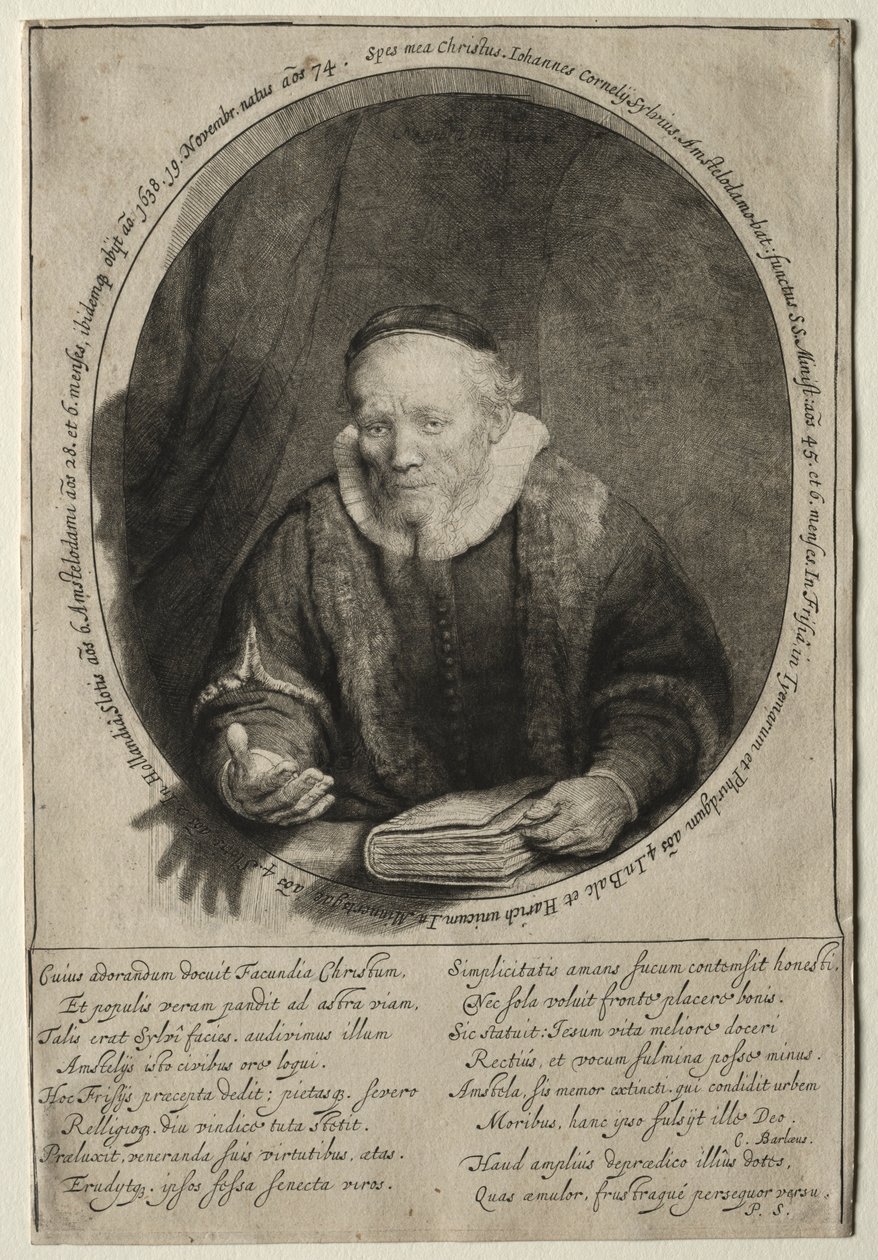 Spes mea Christus. Iohannes Cornelÿ Sylvius. Amstelodamo-bat: functus S.S. Minist: aõs 45. et 6. menses. In Frisiâ in Tyenarum et Phirdgum aõs 4. In Balc et Harich unicum. In Minnertsgae aõs 4. aõs In Hollandiâ Slotis aõs 6. Amstelodami aõs 28. et 6. menses, ibidemq obÿt aõ. 1638. 19. Novembr. natus aõs 74.
Cuius adorandum docuit Facundia Christum,
Et populis veram pandit ad astra viam,
Talis erat Sylvî facies. audivimus illum
Amstelÿs isto civibus ore loqui.
Hoc Frisÿs præcepta dedit; pietasq. severo
Relligioq. diu vindice tuta stetit.
Præluxit, veneranda suis virtutibus, ætas.
Erudytq. ipsos fessa senecta viros.
Simplicitatis amans fucum contemsit honesti,
Nec sola voluit fronte placere bonis.
Sic statuit: Iesum vita meliore doceri
Rectiús, et vocum fulmina posse minus.
Amstela, sis memor extincti. qui condidit urbem
Moribus, hanc ipso fulsÿt ille Deo.
C. Barlæus.
Haud ampliús deprædico illíus dotes,
Quas æmulor, frustraqué persequor versu.
P. S.